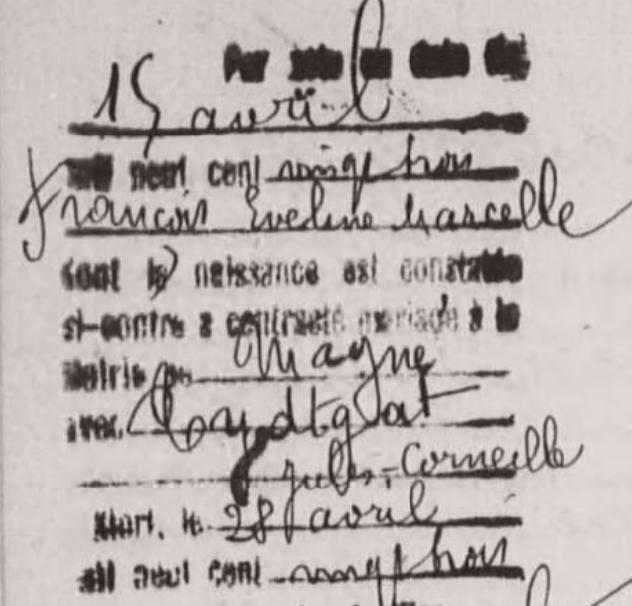 Par acte en date du
15 avril
mil neuf cent vingt trois
François Eveline Marcelle
dont la naissance est constatée
ci-contre a contracté mariage à la
Mairie de Magne
avec
Jules, Corneille
Mort. le 28 avril
mil neuf cent vingt trois